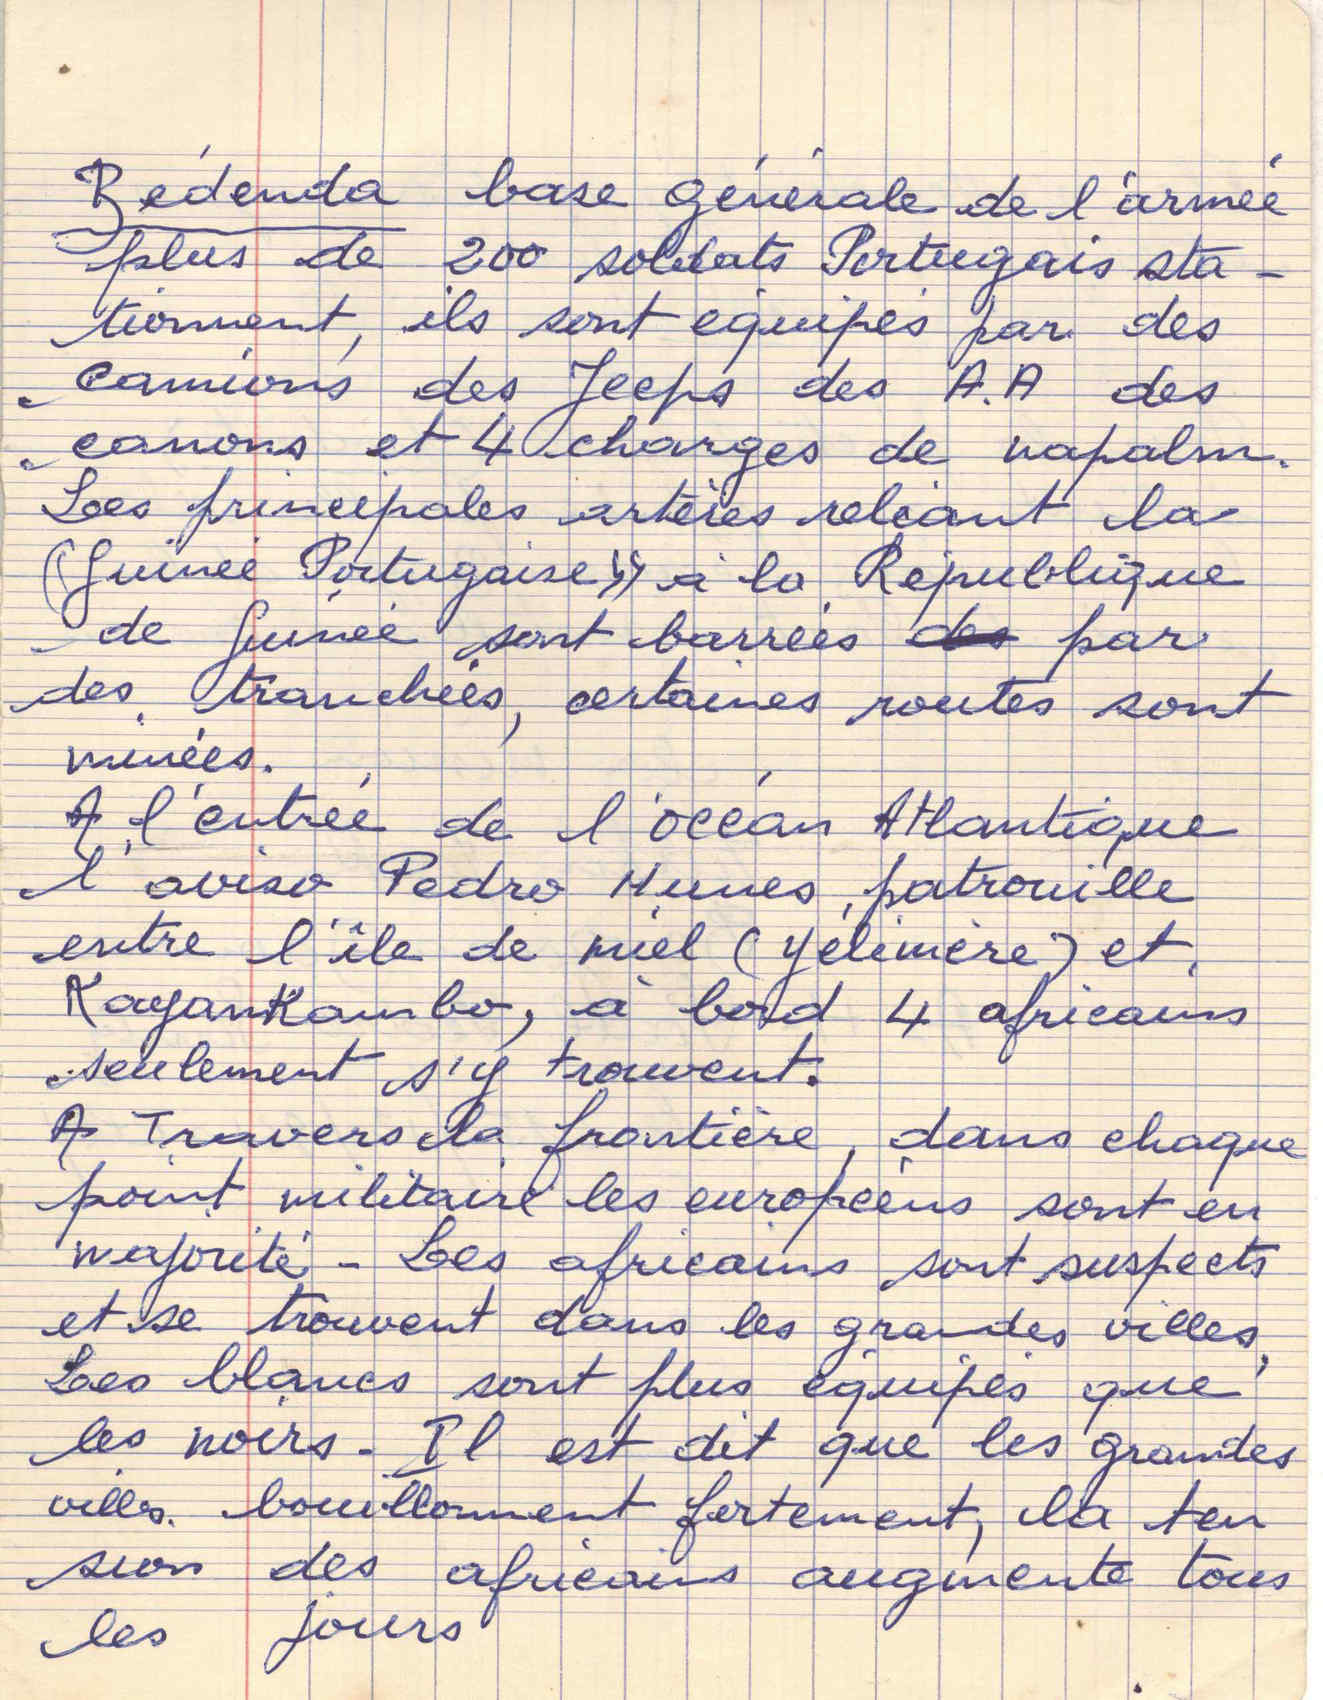 Bédenda base générale de l'armée
plus de 200 soldats Portugais sta-
tionnent, ils sont équipés par des
camions des Jeeps des A.A des
canons et 4 charges de napalm.
Les principales artères reliant la
(Guinée Portugaise)) à la République
de Guinée sont barrées des par
des tranchées, certaines routes sont
minées.
A l'entrée de l'océan Atlantique
l'aviso Pedro Nunes, patrouille
entre l'île de miel (yélimère) et
KayanKambo, à bord 4 africains
seulement s'y trouvent.
A Travers la frontière, dans chaque
point militaire les européens sont en
majorité - Les africains sont suspects
et se trouvent dans les grandes villes,
Les blancs sont plus équipés que
les noirs - Il est dit que les grandes
villes. bouillonnent fortement, la ten
sion des africains augmente tous
les jours